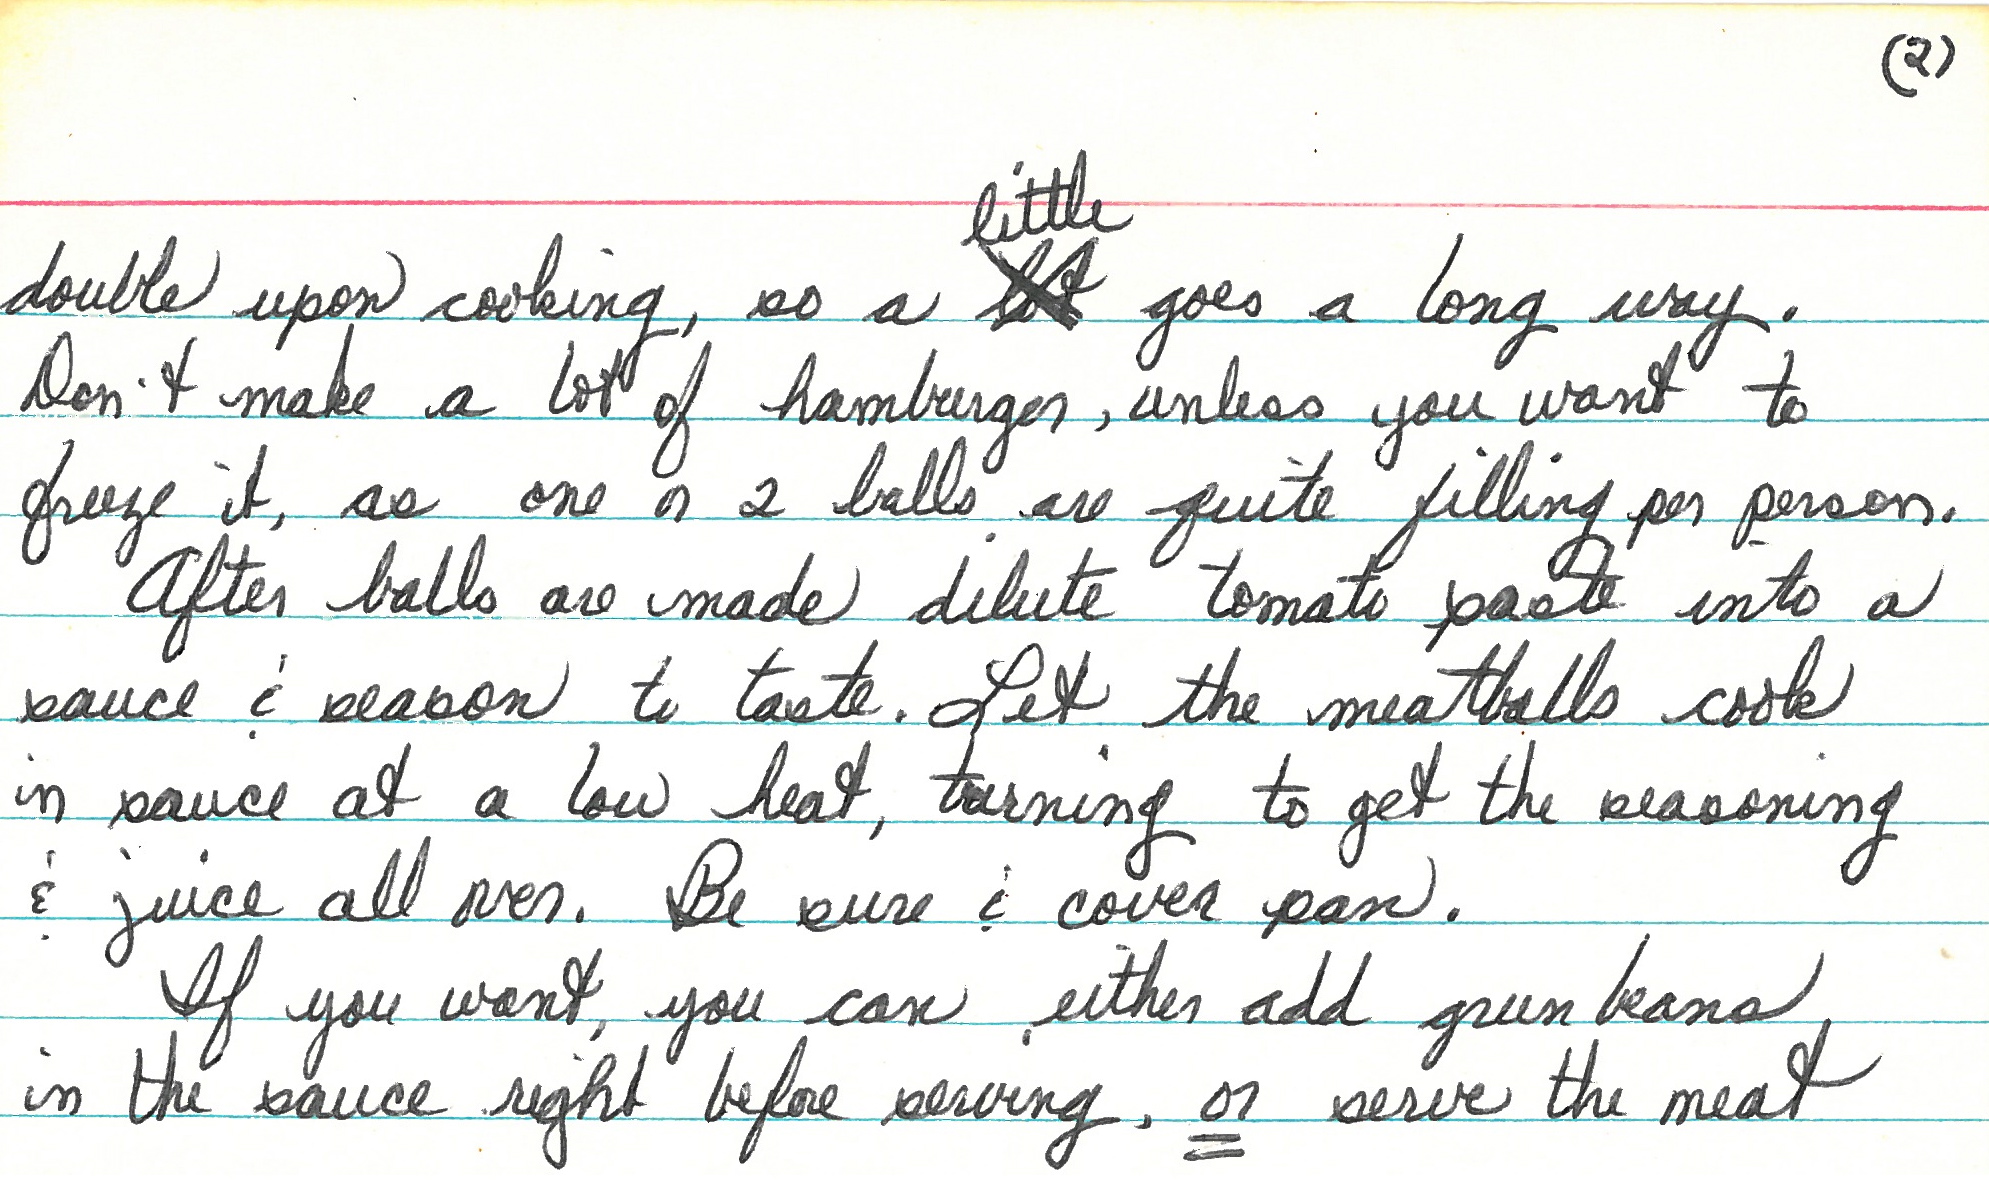 (2)
little
double upon cooking, so a lot goes a long way.
Don't make a lot of hamburger, unless you want to
freeze it, as one or 2 balls are quite filling per person.
After balls are made dilute tomato paste into a
sauce & season to taste. Let the meatballs cook
in sauce at a low heat, turning to get the seasoning
& juice all over. Be sure & cover pan.
If you want, you can either add green beans
in the sauce right before serving, or serve the meat